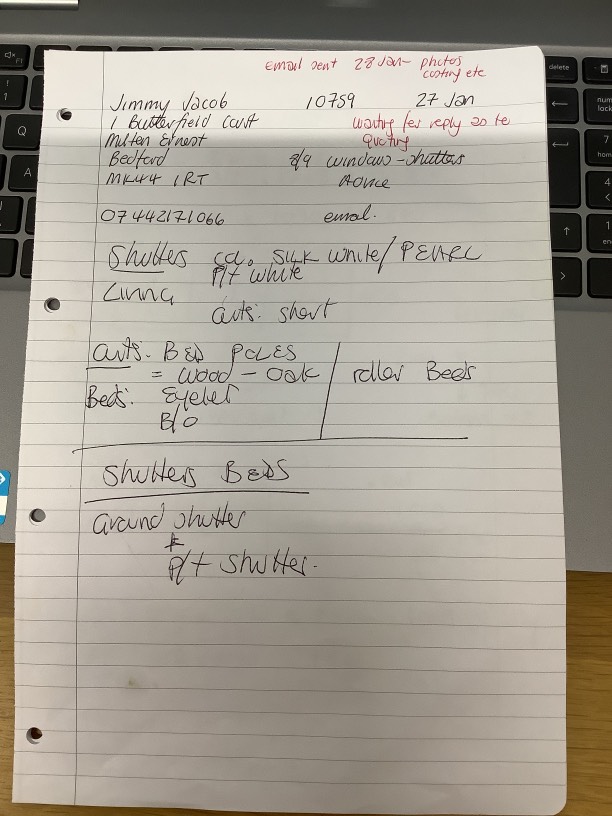 Email sent 28 Jan - photos
costing etc
Jimmy Jacob 10759 27 Jan
1 Butterfield Court waiting for reply as to
Milton Ernest quoting
Bedford 8/9 windows - shutters
MK44 1RT Advice
07442171066 email.
Shutters col. SILK white / PEARL
P/t white
Living
curts: short
curts. BED POLES
= wood - oak roller Beds
Beds: Eyelet
B/O
Shutters BEDS
around shutter
P/t Shutter.
delete
num
lock
home
end
Q
A
F1